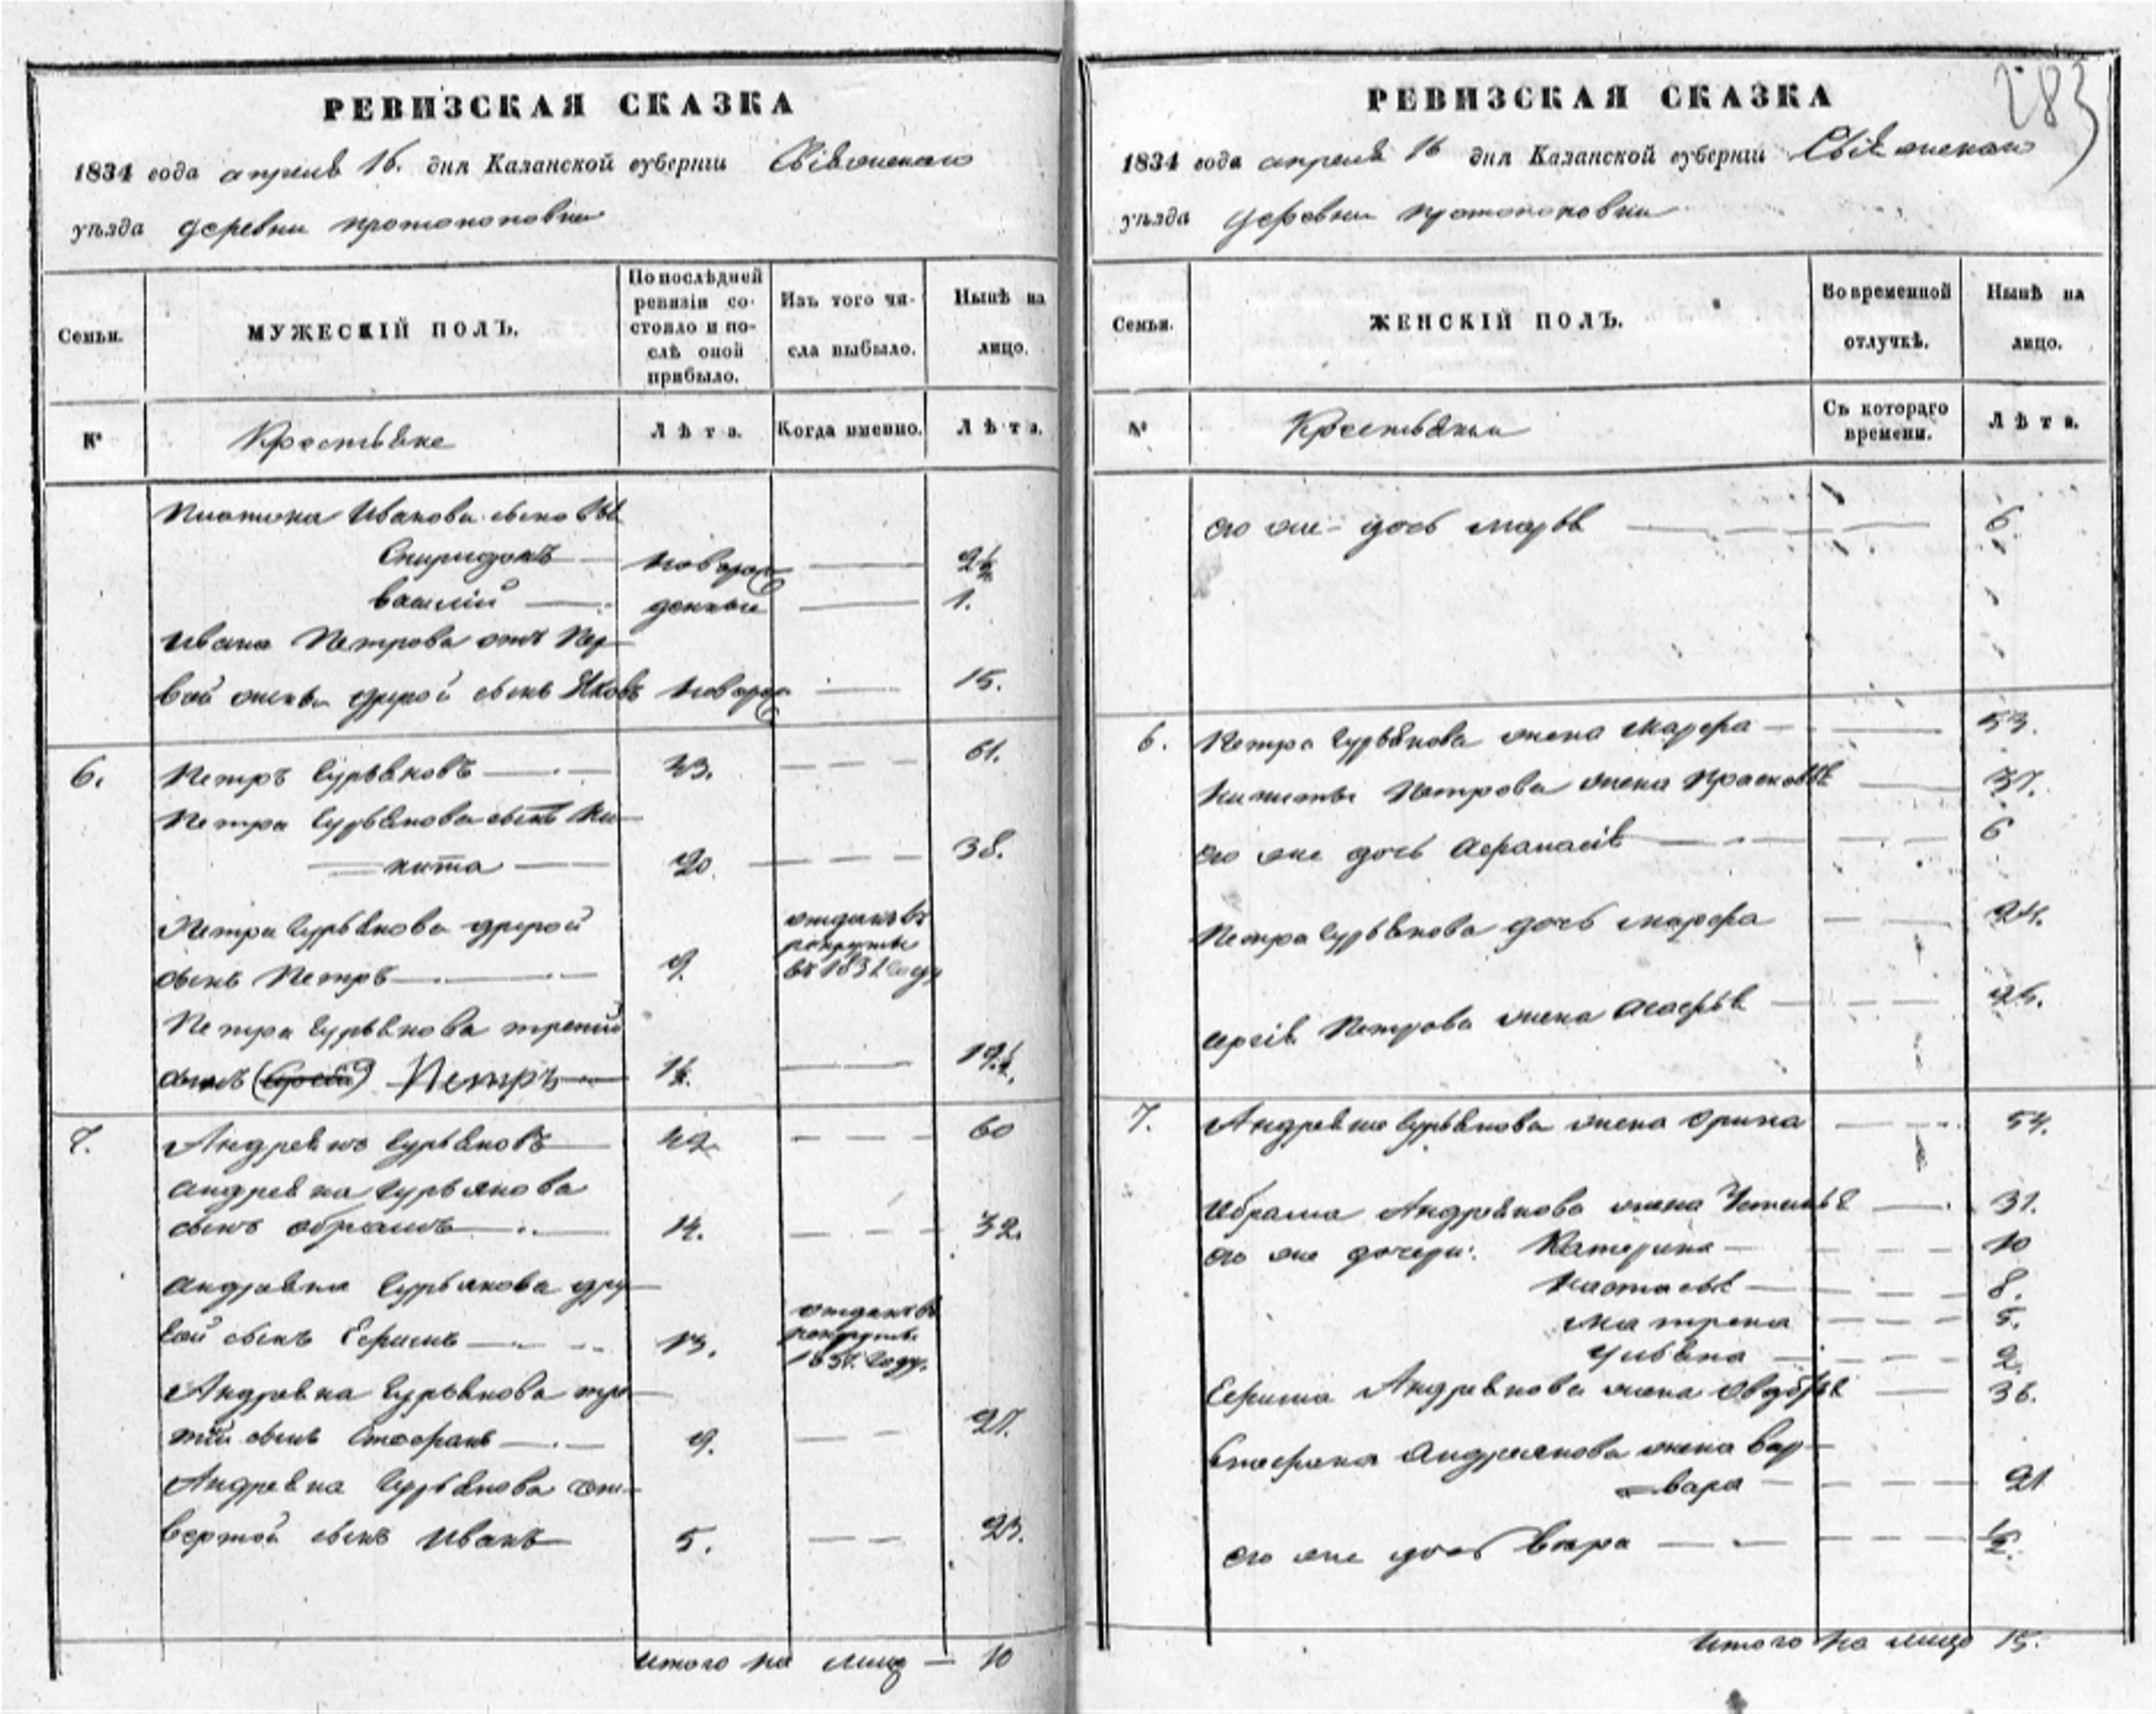 РЕВИЗСКАЯ СКАЗКА
1834 года апреля 16. дня Казанской губернiи Свіяжскаго
уѣзда деревни Протопоповки
Семьи.
МУЖЕСКІЙ ПОЛЪ.
По послѣдней
ревизіи со-
стояло и по-
слѣ оной
прибыло.
Изъ того чи-
сла выбыло.
Нынѣ на
лицо.
№
Крестьяне
Лѣта.
Когда именно.
Лѣта.
Платона Иванова сыновья
Спиридонъ — новорож — 2½
Василій — денные — 1.
Ивана Петрова отъ пер
вой жены другой сынъ Яковъ новорож — 15.
6. Петръ Гурьяновъ — 43. — 61.
Петра Гурьянова сынъ Ни-
кита — 20. — 38.
Петра Гурьянова другой
сынъ Петръ — 9. отданъ въ
рекруты
въ 1831 году
Петра Гурьянова третій
сынъ (Сергѣй) Петръ — 1½. — 19½.
7. Андреянъ Гурьяновъ — 42 — 60
Андреяна Гурьянова
сынъ Абрамъ — 14. — 32.
Андреяна Гурьянова дру
гой сынъ Ефимъ — 13. отданъ въ
рекруты
1831. году.
Андреяна Гурьянова тре
тій сынъ Степанъ — 9. — 27.
Андреяна Гурьянова чет-
вертой сынъ Иванъ 5. — 23.
Итого на лицо — 10
283
РЕВИЗСКАЯ СКАЗКА
1834 года апреля 16 дня Казанской губернiи Свіяжскаго
уѣзда деревни Протопоповки
Семьи.
ЖЕНСКІЙ ПОЛЪ.
Во временной
отлучкѣ.
Нынѣ на
лицо.
№
Крестьянки
Съ котораго
времени.
Лѣта.
его же дочь Марья — 6
6. Петра Гурьянова жена Марфа — 53.
Никиты Петрова жена Прасковья — 37.
его же дочь Афанасія — 6
Петра Гурьянова дочь Марфа — 24.
Сергія Петрова жена Агафья — 25.
7. Андреяна Гурьянова жена Орина — 54.
Абрама Андреянова жена Устинья — 31.
его же дочери: Катерина — 10
Настасья — 8.
Матрена — 5.
Ульяна — 2.
Ефима Андреянова жена Авдотья — 36.
Степана Андреянова жена Вар-
вара — 21
его же дочь Вера — ½.
Итого на лицо 15.